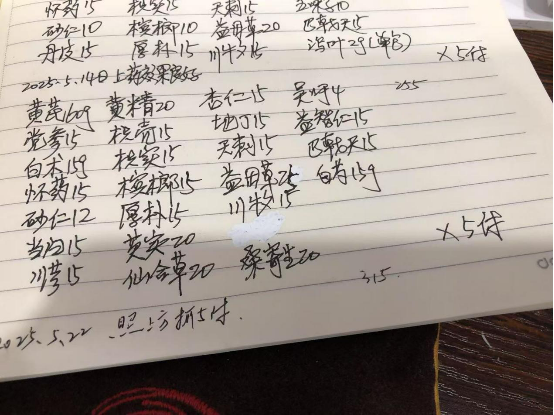 怀药15 枳实15 天刺15 五味子10
砂仁10 槟榔10 益母草20 巴戟天15
丹皮15 厚朴15 川牛夕15 ×5付
2025.5.14日上
黄芪160g 黄精20 杏仁15 吴叮4 255
党参15 枳壳15 地丁15 益智仁15
白术15g 枳实15 天刺15 巴戟天15
怀药15 槟榔15 益母草25 白芍15g
砂仁12 厚朴15 川牛夕15
当归15 芡实20 ×5付
川芎15 仙合草20 桑寄生20
315.
2025.5.22 照上方抓5付.